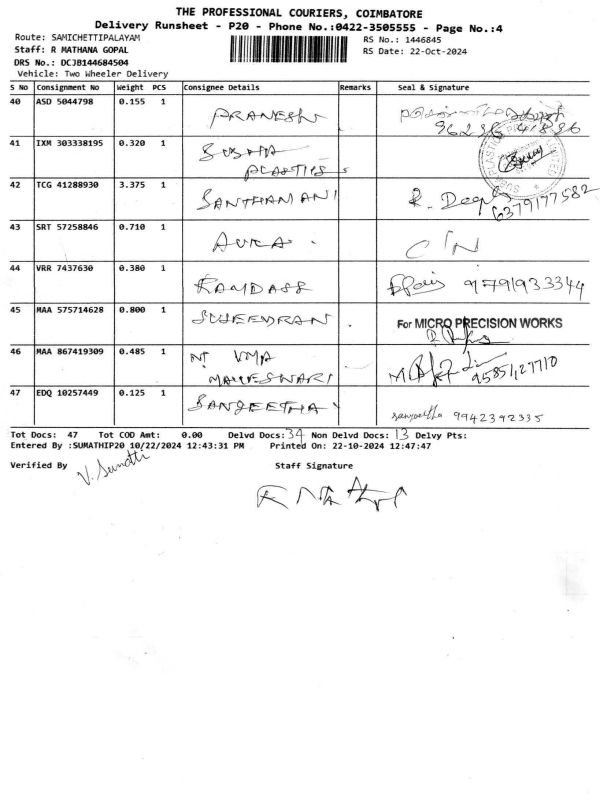 THE PROFESSIONAL COURIERS, COIMBATORE
Delivery Runsheet - P20 - Phone No.:0422-3505555 - Page No.:4
Route: SAMICHETTIPALAYAM RS No.: 1446845
Staff: R MATHANA GOPAL RS Date: 22-Oct-2024
DRS No.: DCJB144684504
Vehicle: Two Wheeler Delivery
S No Consignment No Weight PCS Consignee Details Remarks Seal & Signature
40 ASD 5044798 0.155 1 PRANESH
41 IXM 303338195 0.320 1
PLASTICS
42 TCG 41288930 3.375 1 SANTHAMANI R. 6379177582
43 SRT 57258846 0.710 1
44 VRR 7437630 0.380 1 RAMDASS 9791933344
45 MAA 575714628 0.800 1 For MICRO PRECISION WORKS
46 MAA 867419309 0.485 1
MAHESWARI
47 EDQ 10257449 0.125 1 SANGEETHA sangeetha 9942392335
Tot Docs: 47 Tot COD Amt: 0.00 Delvd Docs: 34 Non Delvd Docs: 13 Delvy Pts:
Entered By :SUMATHIP20 10/22/2024 12:43:31 PM Printed On: 22-10-2024 12:47:47
Verified By V. Sumathi Staff Signature